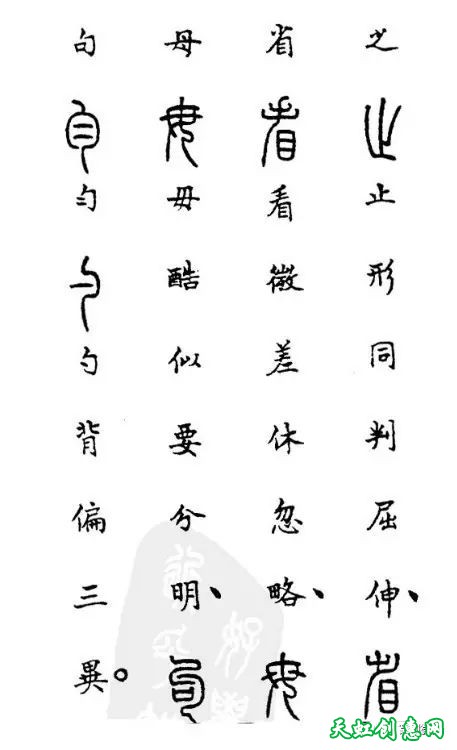 之止形同判屈伸、
省看微差休忽略、
母毋酷似要分明、
句匀勺背偏三異。
天虹创意网